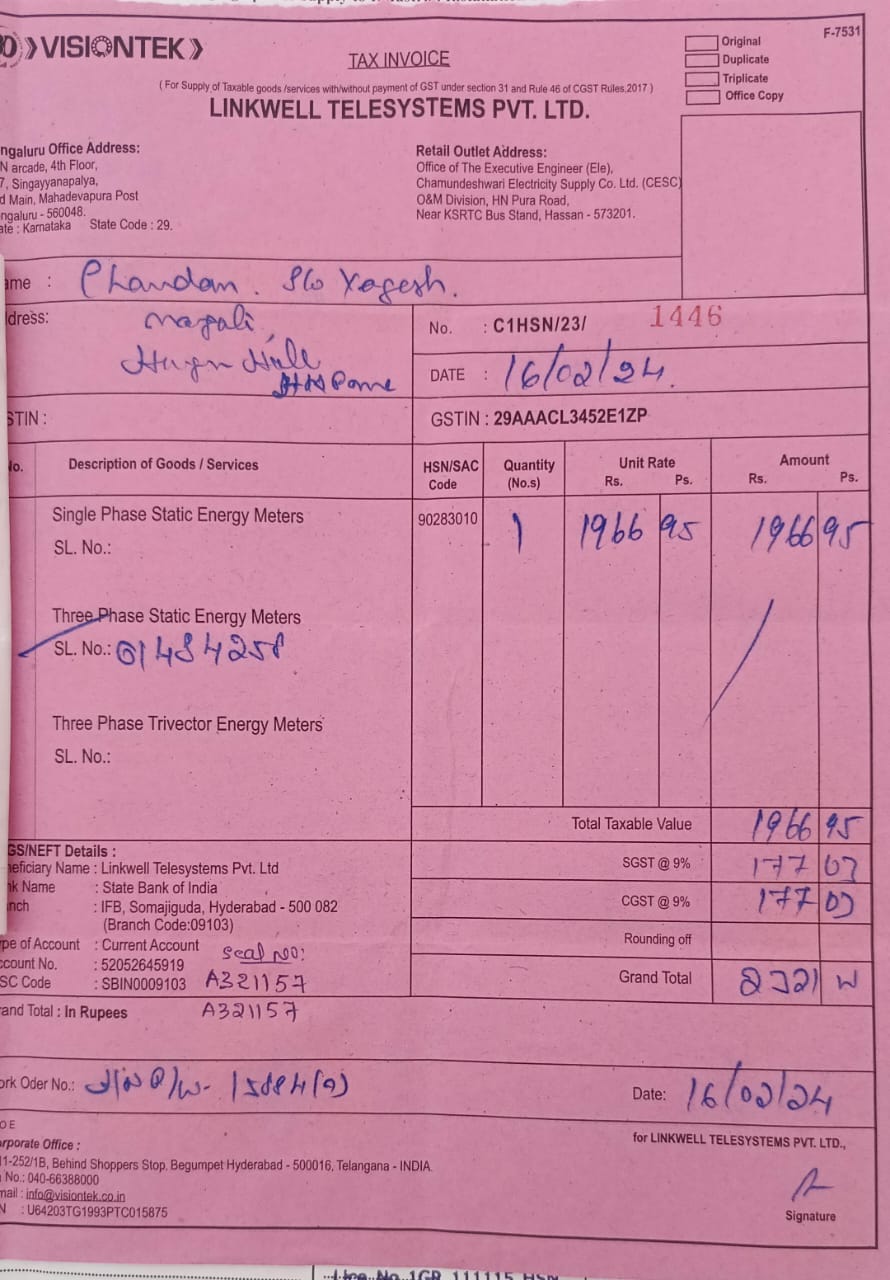 VISIONTEK
TAX INVOICE
Original
Duplicate
Triplicate
Office Copy
F-7531
( For Supply of Taxable goods /services with/without payment of GST under section 31 and Rule 46 of CGST Rules,2017 )
LINKWELL TELESYSTEMS PVT. LTD.
ngaluru Office Address:
N arcade, 4th Floor,
7, Singayyanapalya,
d Main, Mahadevapura Post
ngaluru - 560048.
ate : Karnataka State Code : 29.
Retail Outlet Address:
Office of The Executive Engineer (Ele),
Chamundeshwari Electricity Supply Co. Ltd. (CESC)
O&M Division, HN Pura Road,
Near KSRTC Bus Stand, Hassan - 573201.
ame : Chandan. S/o Yogesh.
dress:
No. : C1HSN/23/ 1446
DATE : 16/02/24.
STIN :
GSTIN : 29AAACL3452E1ZP
o. Description of Goods / Services HSN/SAC Code Quantity (No.s) Unit Rate Rs. Ps. Amount Rs. Ps.
Single Phase Static Energy Meters 90283010 1 1966 95 1966 95
SL. No.:
Three Phase Static Energy Meters
SL. No.:
Three Phase Trivector Energy Meters
SL. No.:
Total Taxable Value 1966 95
SGST @ 9% 177 03
CGST @ 9% 177 03
Rounding off
Grand Total 2321
GS/NEFT Details :
eficiary Name : Linkwell Telesystems Pvt. Ltd
nk Name : State Bank of India
nch : IFB, Somajiguda, Hyderabad - 500 082
(Branch Code:09103)
pe of Account : Current Account
count No. : 52052645919
SC Code : SBIN0009103
Seal No:
A321157
A321157
and Total : In Rupees
ork Oder No.:
Date: 16/02/24
O E
rporate Office :
11-252/1B, Behind Shoppers Stop, Begumpet Hyderabad - 500016, Telangana - INDIA.
No.: 040-66388000
mail : info@visiontek.co.in
N : U64203TG1993PTC015875
for LINKWELL TELESYSTEMS PVT. LTD.,
Signature